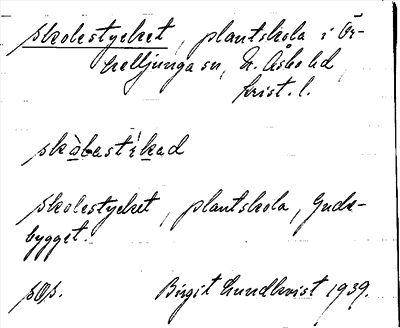 skolestycket, plantskola i Ör-
kelljunga sn, N. Åsbo hd,
krist. l.
skòlestikad
skolestycket, plantskola, Guds-
bygget.
sOs. Birgit Lundkvist 1939.